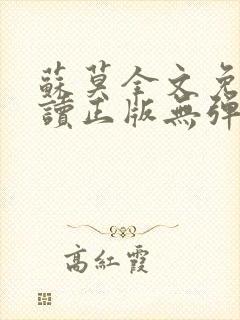 蘇莫全文免
讀正版無彈
高紅霞